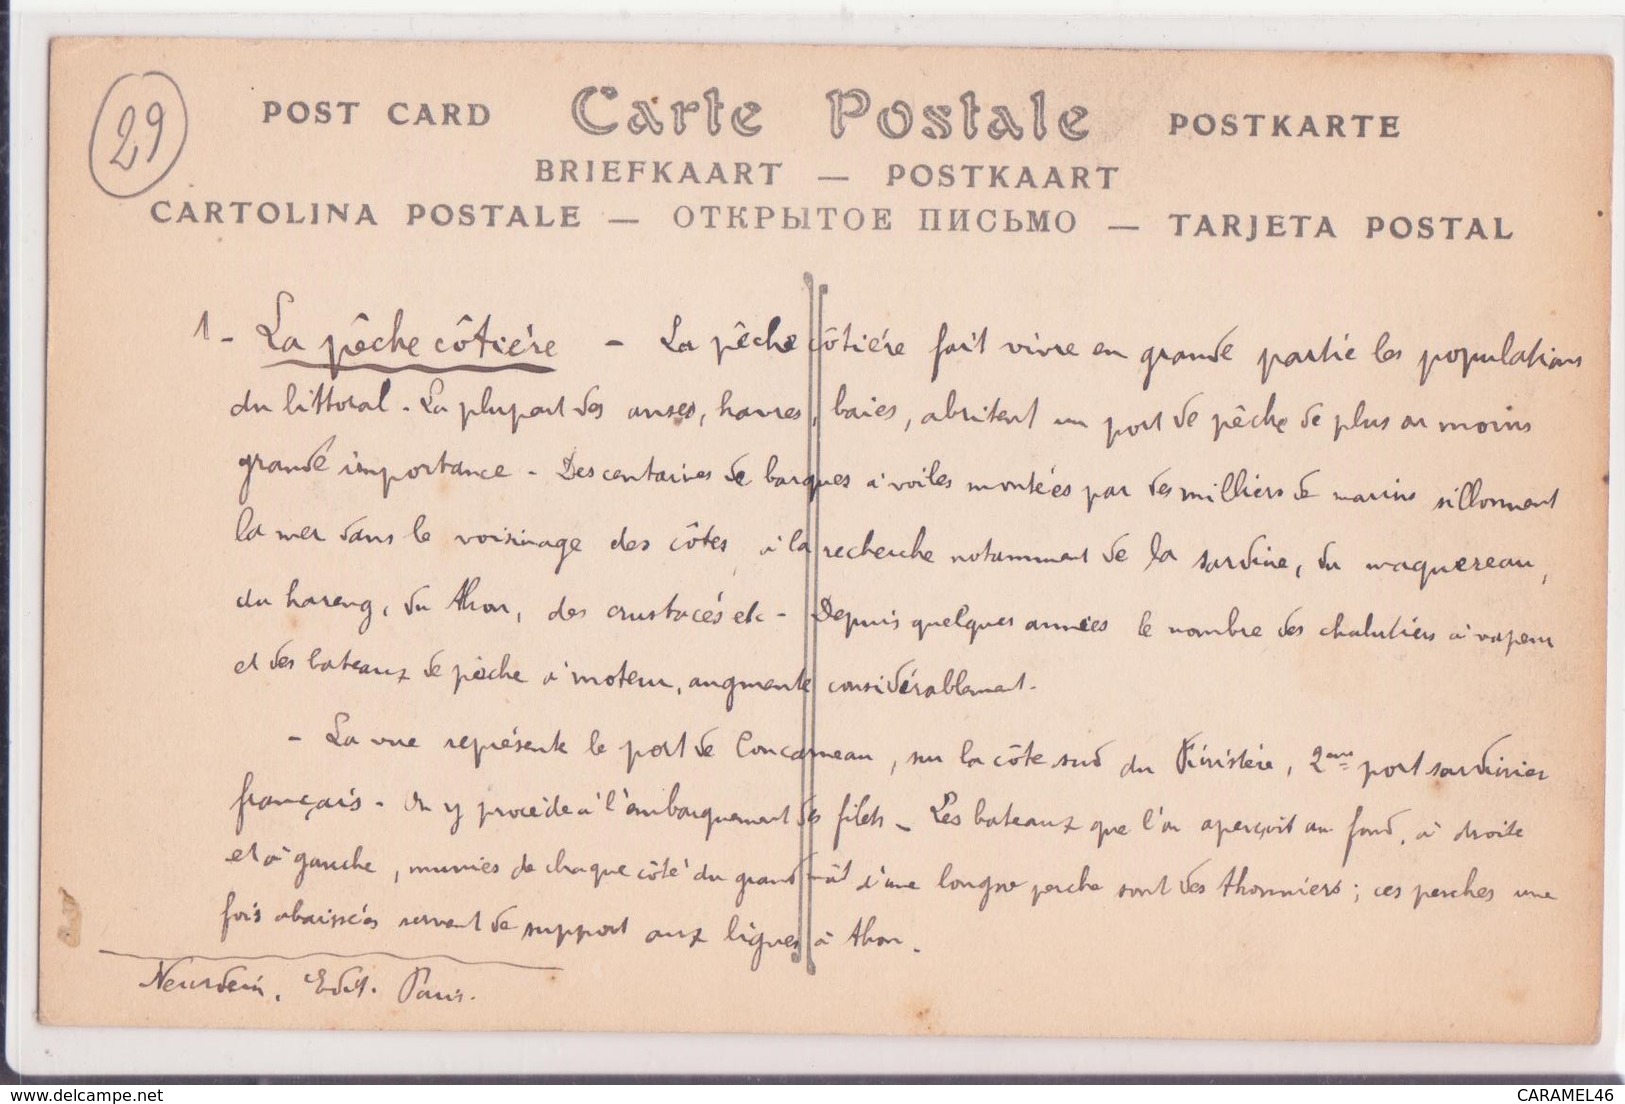 29
POST CARD Carte Postale POSTKARTE
BRIEFKAART — POSTKAART
CARTOLINA POSTALE — ОТКРЫТОЕ ПИСЬМО — TARJETA POSTAL
1 - La pêche côtière - La pêche côtière fait vivre en grande partie les populations
du littoral. La plupart des anses, havres, baies, abritent un port de pêche de plus ou moins
grande importance - Des centaines de barques à voiles montées par des milliers de marins sillonnent
la mer dans le voisinage des côtes, à la recherche notamment de la sardine, du maquereau,
du hareng, du thon, des crustacés etc - Depuis quelques années le nombre des chalutiers à vapeur
et des bateaux de pêche à moteur, augmente considérablement.
- La vue représente le port de Concarneau, sur la côte sud du Finistère, 2ème port sardinier
français. On y procède à l'embarquement des filets - Les bateaux que l'on aperçoit au fond, à droite
et à gauche, munies de chaque côté du grand mât d'une longue perche sont des thonniers ; ces perches une
fois abaissées servent de support aux lignes à thon.
Neurdein, Edit. Paris.
delcampe.net
CARAMEL46